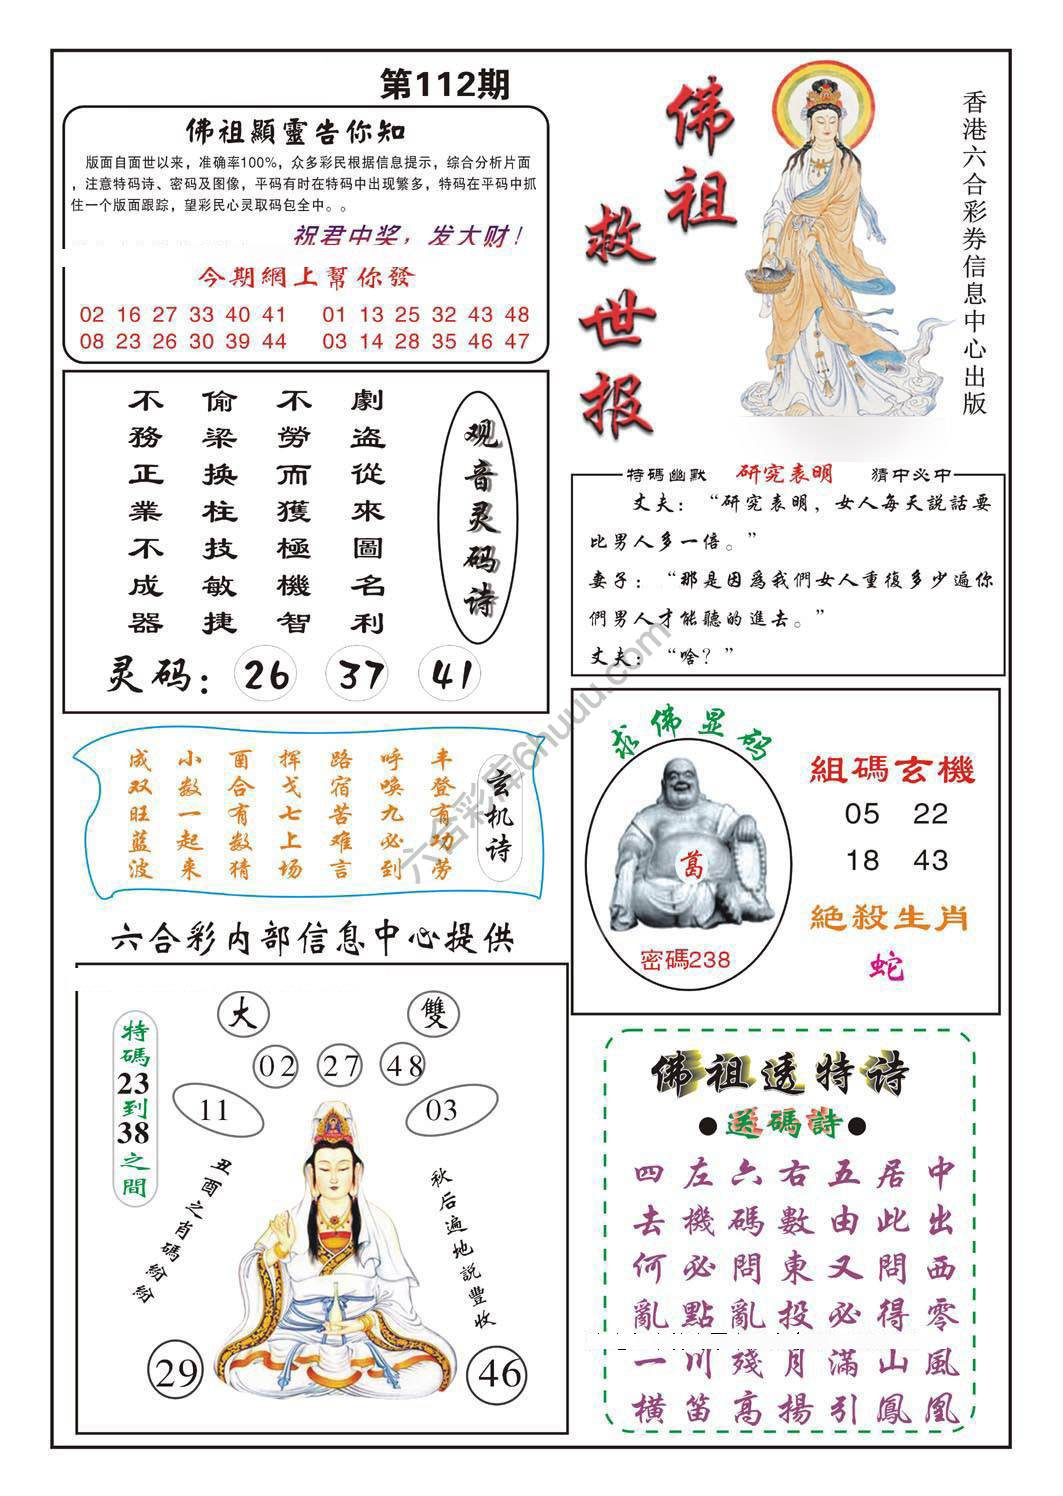 第112期
佛祖顯靈告你知
版面自面世以来，准确率100%，众多彩民根据信息提示，综合分析片面
，注意特码诗、密码及图像，平码有时在特码中出现繁多，特码在平码中抓
住一个版面跟踪，望彩民心灵取码包全中。。
祝君中奖，发大财！
今期網上幫你發
02 16 27 33 40 41 01 13 25 32 43 48
08 23 26 30 39 44 03 14 28 35 46 47
佛祖
救世报
香港六合彩券信息中心出版
观音灵码诗
劇盗從來圖名利
不勞而獲極機智
偷梁换柱技敏捷
不務正業不成器
灵码：26 37 41
特碼幽默 研究表明 猜中必中
丈夫：“研究表明，女人每天説話要
比男人多一倍。”
妻子：“那是因爲我們女人重復多少遍你
們男人才能聽的進去。”
丈夫：“啥？”
玄机诗
丰登有功劳
呼唤九必到
路宿苦难言
挥戈七上场
酉合有数猜
小数一起来
成双旺蓝波
求佛显码
葛
密碼238
組碼玄機
05 22
18 43
絕殺生肖
蛇
六合彩内部信息中心提供
大 雙
02 27 48
11 03
特碼23到38之間
丑酉之肖碼紛紛
秋后遍地説豐收
29 46
佛祖透特诗
●送碼詩●
四左六右五居中
去機碼數由此出
何必問東又問西
亂點亂投必得零
一川殘月滿山風
橫笛高揚引鳳凰
六合彩库6huuu.com